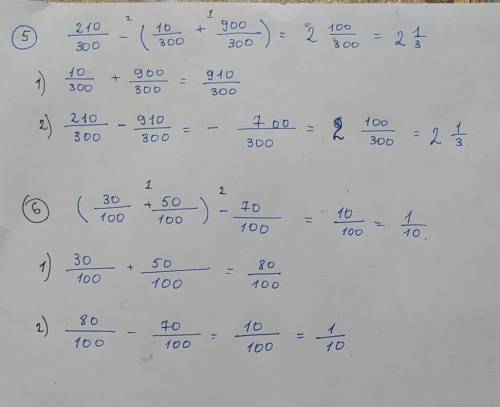 5 210/300 - ² ( 10/300 + ¹ 900/300 ) = 2 100/300 = 2 1/3
1) 10/300 + 900/300 = 910/300
2) 210/300 - 910/300 = - 700/300 = 2 100/300 = 2 1/3.
6 ( 30/100 + ¹ 50/100 ) - ² 70/100 = 10/100 = 1/10.
1) 30/100 + 50/100 = 80/100
2) 80/100 - 70/100 = 10/100 = 1/10.